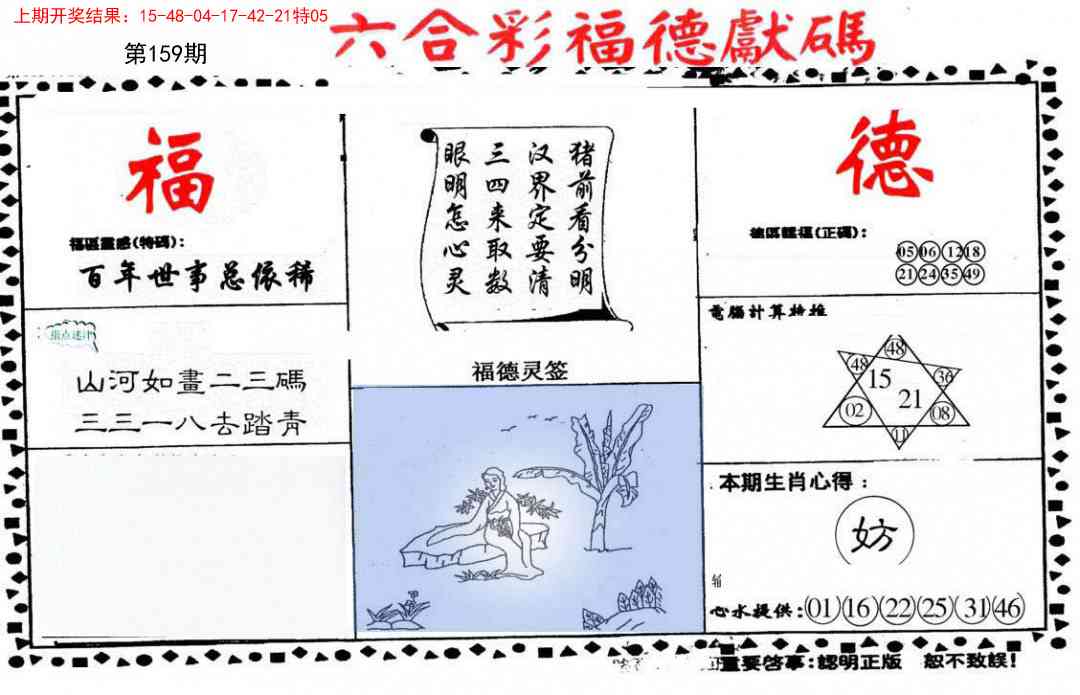 上期开奖结果：15-48-04-17-42-21特05
第159期
六合彩福德獻碼
福
福區靈感(特碼)：
百年世事总依稀
指点迷津
山河如畫二三碼
三三一八去踏青
猪前看分明
汉界定要清
三四来取数
眼明怎心灵
福德灵签
德
德區(正碼)：
05 06 12 18
21 24 35 49
電腦計算
48
48 36
15
21
02 08
11
本期生肖心得：
妨
心水提供：01 16 22 25 31 46
重要啓事：認明正版 恕不致誤！